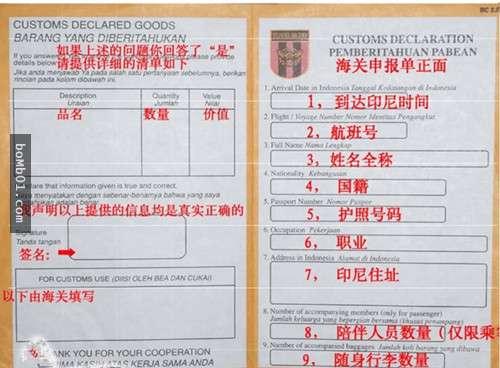 BC 2.2
CUSTOMS DECLARED GOODS
BARANG YANG DIBERITAHUKAN
如果上述的问题你回答了“是”
请提供详细的清单如下
If you answer
please provide
details below
Jika anda menjawab Ya pada salah satu pertanyaan sebelumnya, berikan
rincian pada kolom dibawah ini.
Description
Uraian
Quantity
Jumlah
Value
Nilai
品名
数量
价值
declare that information given is true and correct.
menyatakan dengan sebenar-benarnya bahwa yang saya
我声明以上提供的信息均是真实正确的
Signature
Tanda tangan
签名:
FOR CUSTOMS USE (DIISI OLEH BEA DAN CUKAI)
以下由海关填写
THANK YOU FOR YOUR COOPERATION
TERIMA KASIH ATAS KERJA SAMA ANDA
CUSTOMS DECLARATION
PEMBERITAHUAN PABEAN
海关申报单正面
1. Arrival Date in Indonesia Tanggal Kedatangan di Indonesia
1， 到达印尼时间
2. Flight / Voyage Number Nomor Identitas Pengangkut
2， 航班号
3. Full Name Nama Lengkap
3， 姓名全称
4. Nationality Kebangsaan
4， 国籍
5. Passport Number Nomor Paspor
5， 护照号码
6. Occupation Pekerjaan
6， 职业
7. Address in Indonesia Alamat di Indonesia
7， 印尼住址
8. Number of accompanying members (only for passenger)
Jumlah keluarga yang bepergian bersama (khusus penumpang)
8， 陪伴人员数量（仅限乘客
9. Number of accompanied baggages
9， 随身行李数量
bomb01.com